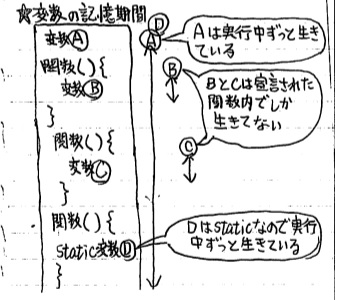 ☆変数の記憶期間
変数Ⓐ
関数(){
変数Ⓑ
}
関数(){
変数Ⓒ
}
関数(){
static変数Ⓓ
}
Ⓓ
Ⓐ
Aは実行中ずっと生き
ている
Ⓑ
BとCは宣言された
関数内でしか
生きてない
Ⓒ
Dはstaticなので実行
中ずっと生きている